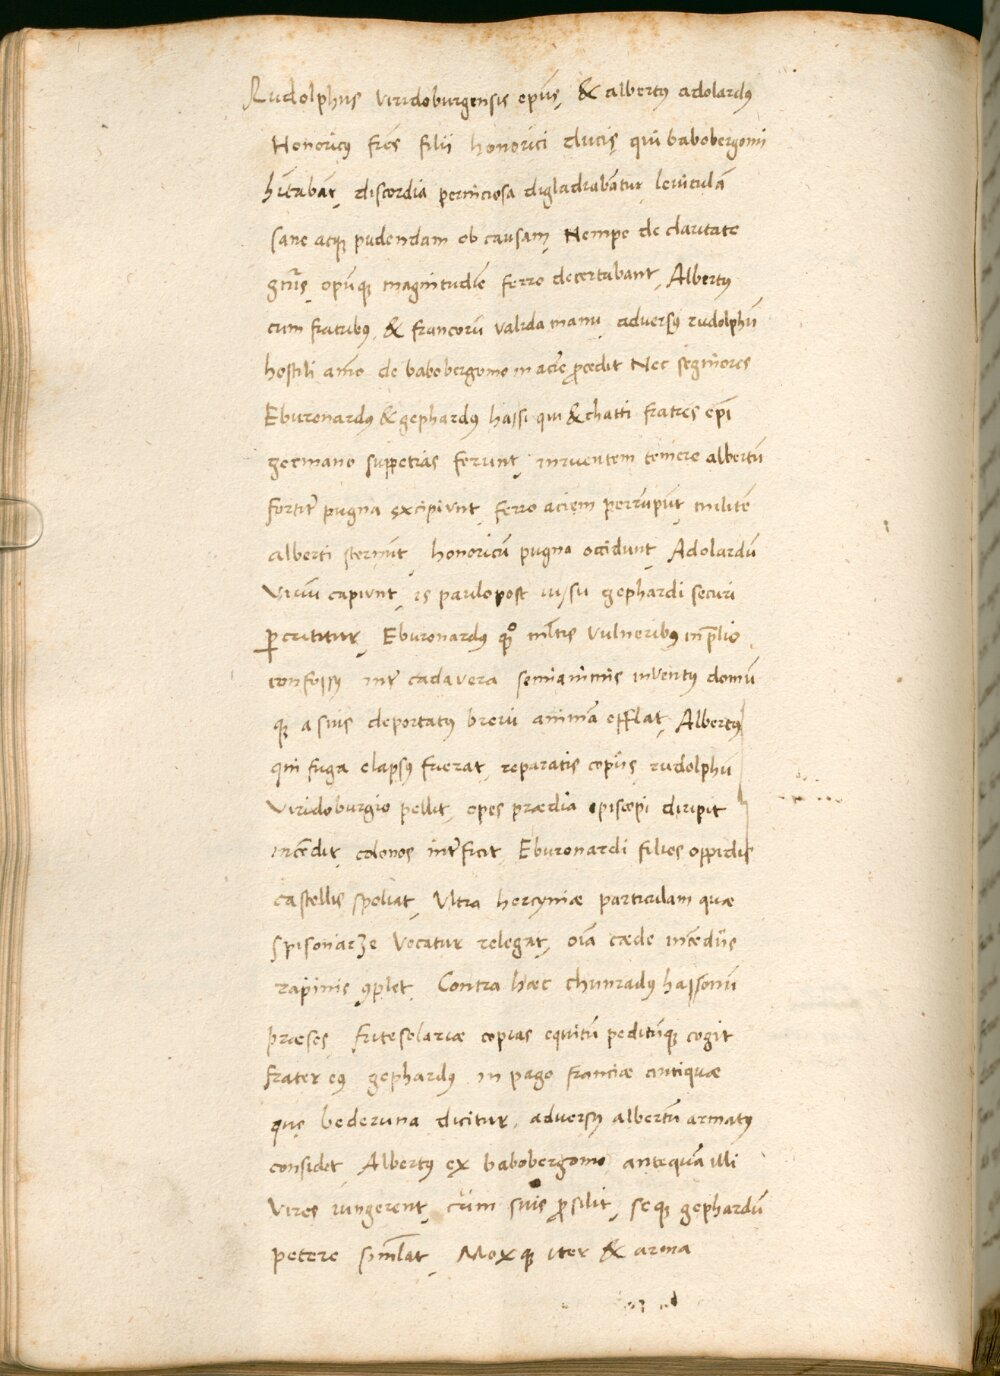 Rudolphus viridoburgensis ep̄us, & albertꝰ adolardꝰ
Henoricꝰ frēs filii honorici ducis, qui babobergomi
hītabāt, discordia perniciosa digladiabātur leviculā
sane atqꝫ pudendam ob causam, Nempe de claritate
gn̄ris, opūqꝫ magnitudīe ferro decertabant, Albertꝰ
cum fratribꝰ, & francorū valida manu, adversꝰ rudolphū
hostili aīo de babobergomo in aciē ꝓcedit Nec segniores
Eburonardꝰ & gephardꝰ hassi qui & chatti fratres ep̄i
germano suppetias ferunt, irruentem temere albertū
fortit̄ pugna excipiunt, ferro aciem perrūpūt, militē
alberti sternūt, honoricū pugna occidunt, Adolardū
vivū capiunt, is paulo post iussu gephardi securi
ꝑcutitur, Eburonardꝰ qꝫ̊ ml̄tis vulneribꝰ in p̄lio
confossꝰ int̄ cadavera semianimis inventꝰ domū
qꝫ a suis deportatꝰ brevi animā efflat, Albertꝰ
qui fuga elapsꝰ fuerat, reparatis copiis, rudolphū
viridoburgio pellit, opes prædia episcopi diripit
incēdit, colonos int̄ficit, Eburonardi filios oppidis
castellis spoliat, Ultra hercyniæ particulam quæ
spisonarze vocatur relegat, oīa cæde incēdiis
rapinis ꝯplet, Contra hæc chunradꝰ hassonū
præses, friteselariæ copias equitū peditūqꝫ cogit
frater eiꝰ gephardꝰ in pago franciæ antiquæ
qui bederuna dicitur, adversꝰ albertū armatꝰ
considet, Albertꝰ ex babobergomo antequā illi
vires iungerent, cūm suis ꝓsilit, seqꝫ gephardū
petere siml̄at, Moxqꝫ iter & arma